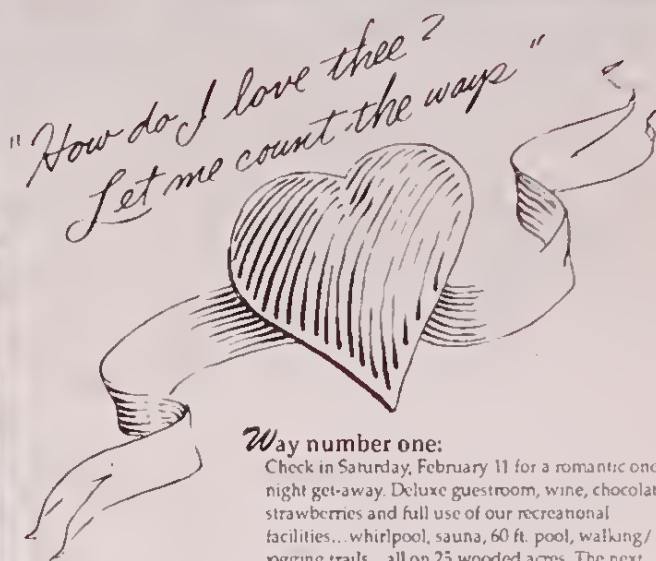 "How do I love thee?
Let me count the ways"
Way number one:
Check in Saturday, February 11 for a romantic one
night get-away. Deluxe guestroom, wine, chocolate
strawberries and full use of our recreational
facilities...whirlpool, sauna, 60 ft. pool, walking/
jogging trails...all on 25 wooded acres. The next